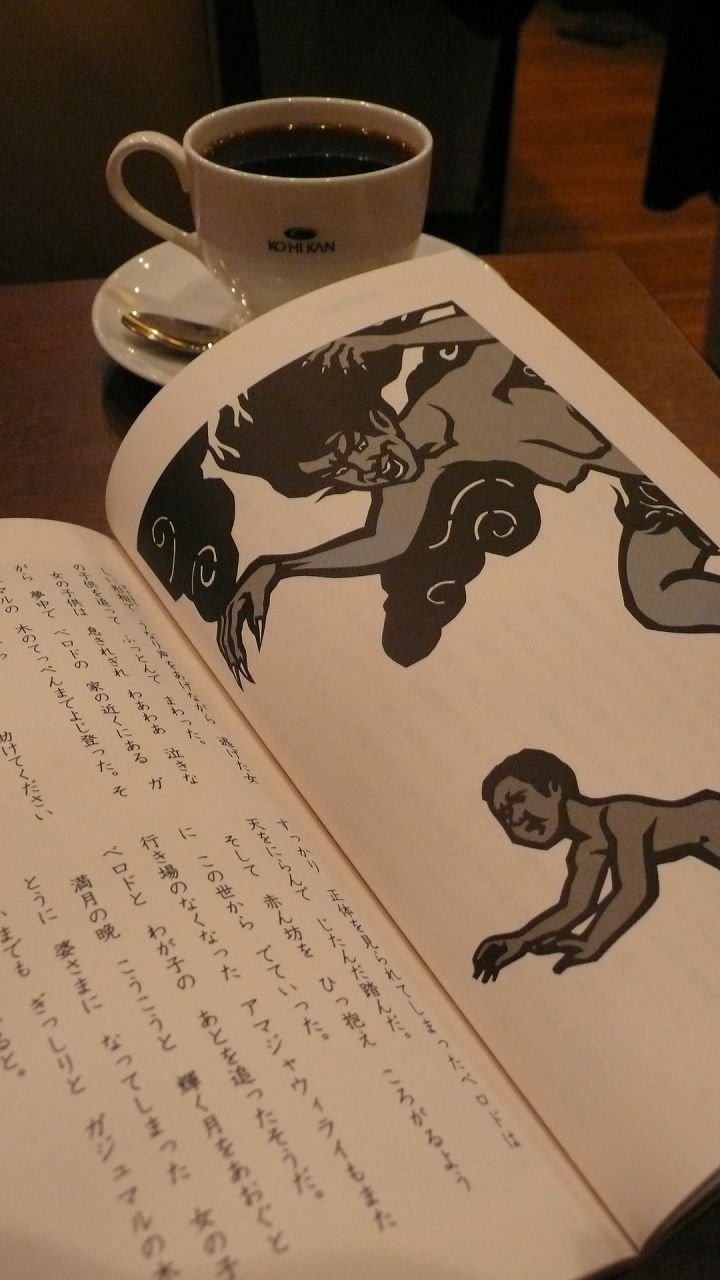 KOHIKAN
うなり声をあげながら 逃げた女
の子供を追って ぶっとんで まわった。
女の子供は 息きれぎれ わあわあ 泣きな
がら 夢中で ベロドの 家の近くにある ガ
マルの 木のてっぺんまでよじ登った。そ
助けてください
すっかり 正体を見られてしまったベロドは
天をにらんで じたんだ踏んだ。
そして 赤ん坊を ひっ抱え ころがるよう
に この世から でていった。
行き場のなくなった アマジャウィライもまた
ベロドと わが子の あとを追ったそうだ。
満月の晩 こうこうと 輝く月をあおぐと
とうに 婆さまに なってしまった 女の子
いまでも ぎっしりと ガジュマルの木
と。